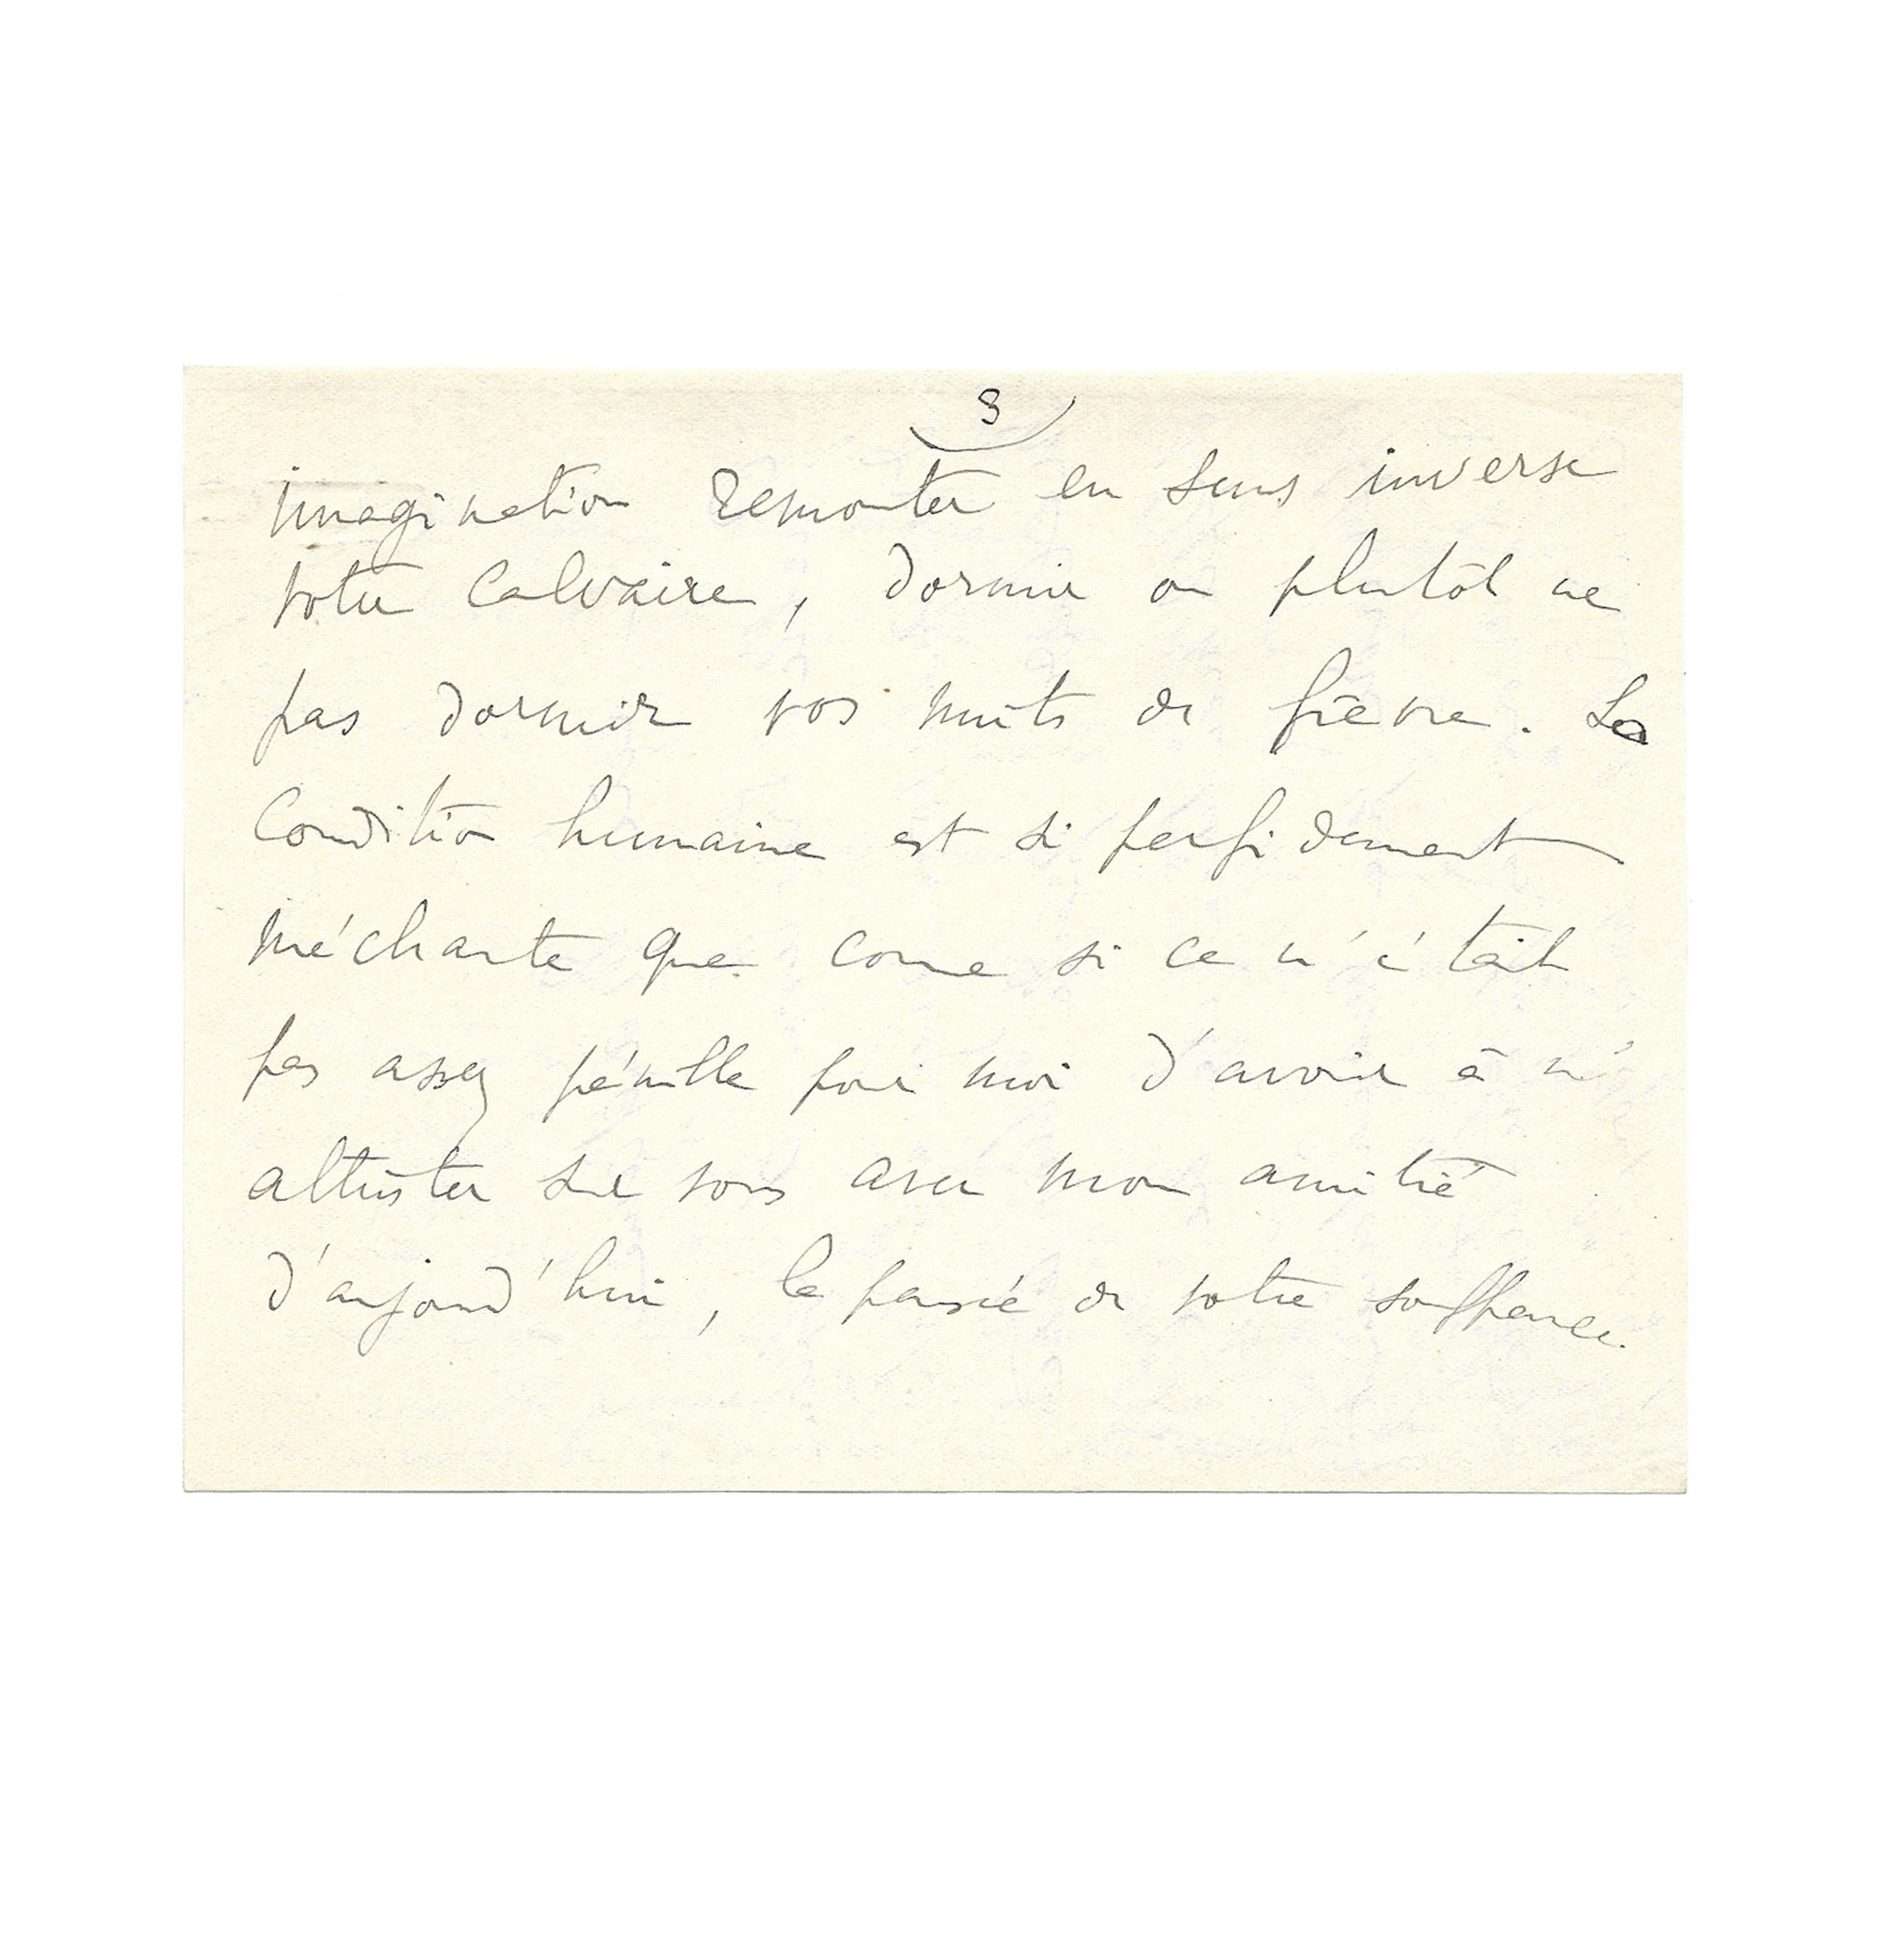 3
imagination remonter en sens inverse
votre Calvaire, dormir ou plutôt ne
pas dormir vos nuits de fièvre. La
Condition humaine est si perfidement
méchante que come si ce n'était
pas assez pénible pour moi d'avoir à m'
attrister sur vous avec mon amitié
d'aujourd'hui, le passé de votre souffrance.